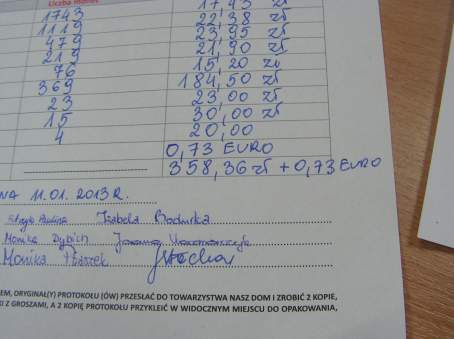 Liczba monet
1743 17,43 zł
1119 22,38 zł
479 23,95 zł
219 21,90 zł
76 15,20 zł
369 184,50 zł
23 23,00 zł
15 30,00 zł
4 20,00
0,73 EURO
358,36 zł + 0,73 EURO
NA 11.01.2013 R.
Izabela
Monika Dybich Joanna
Monika
EM, ORYGINAŁ(Y) PROTOKOŁU (ÓW) PRZESŁAĆ DO TOWARZYSTWA NASZ DOM I ZROBIĆ 2 KOPIE,
KI Z GROSZAMI, A 2 KOPIĘ PROTOKOŁU PRZYKLEIĆ W WIDOCZNYM MIEJSCU DO OPAKOWANIA,